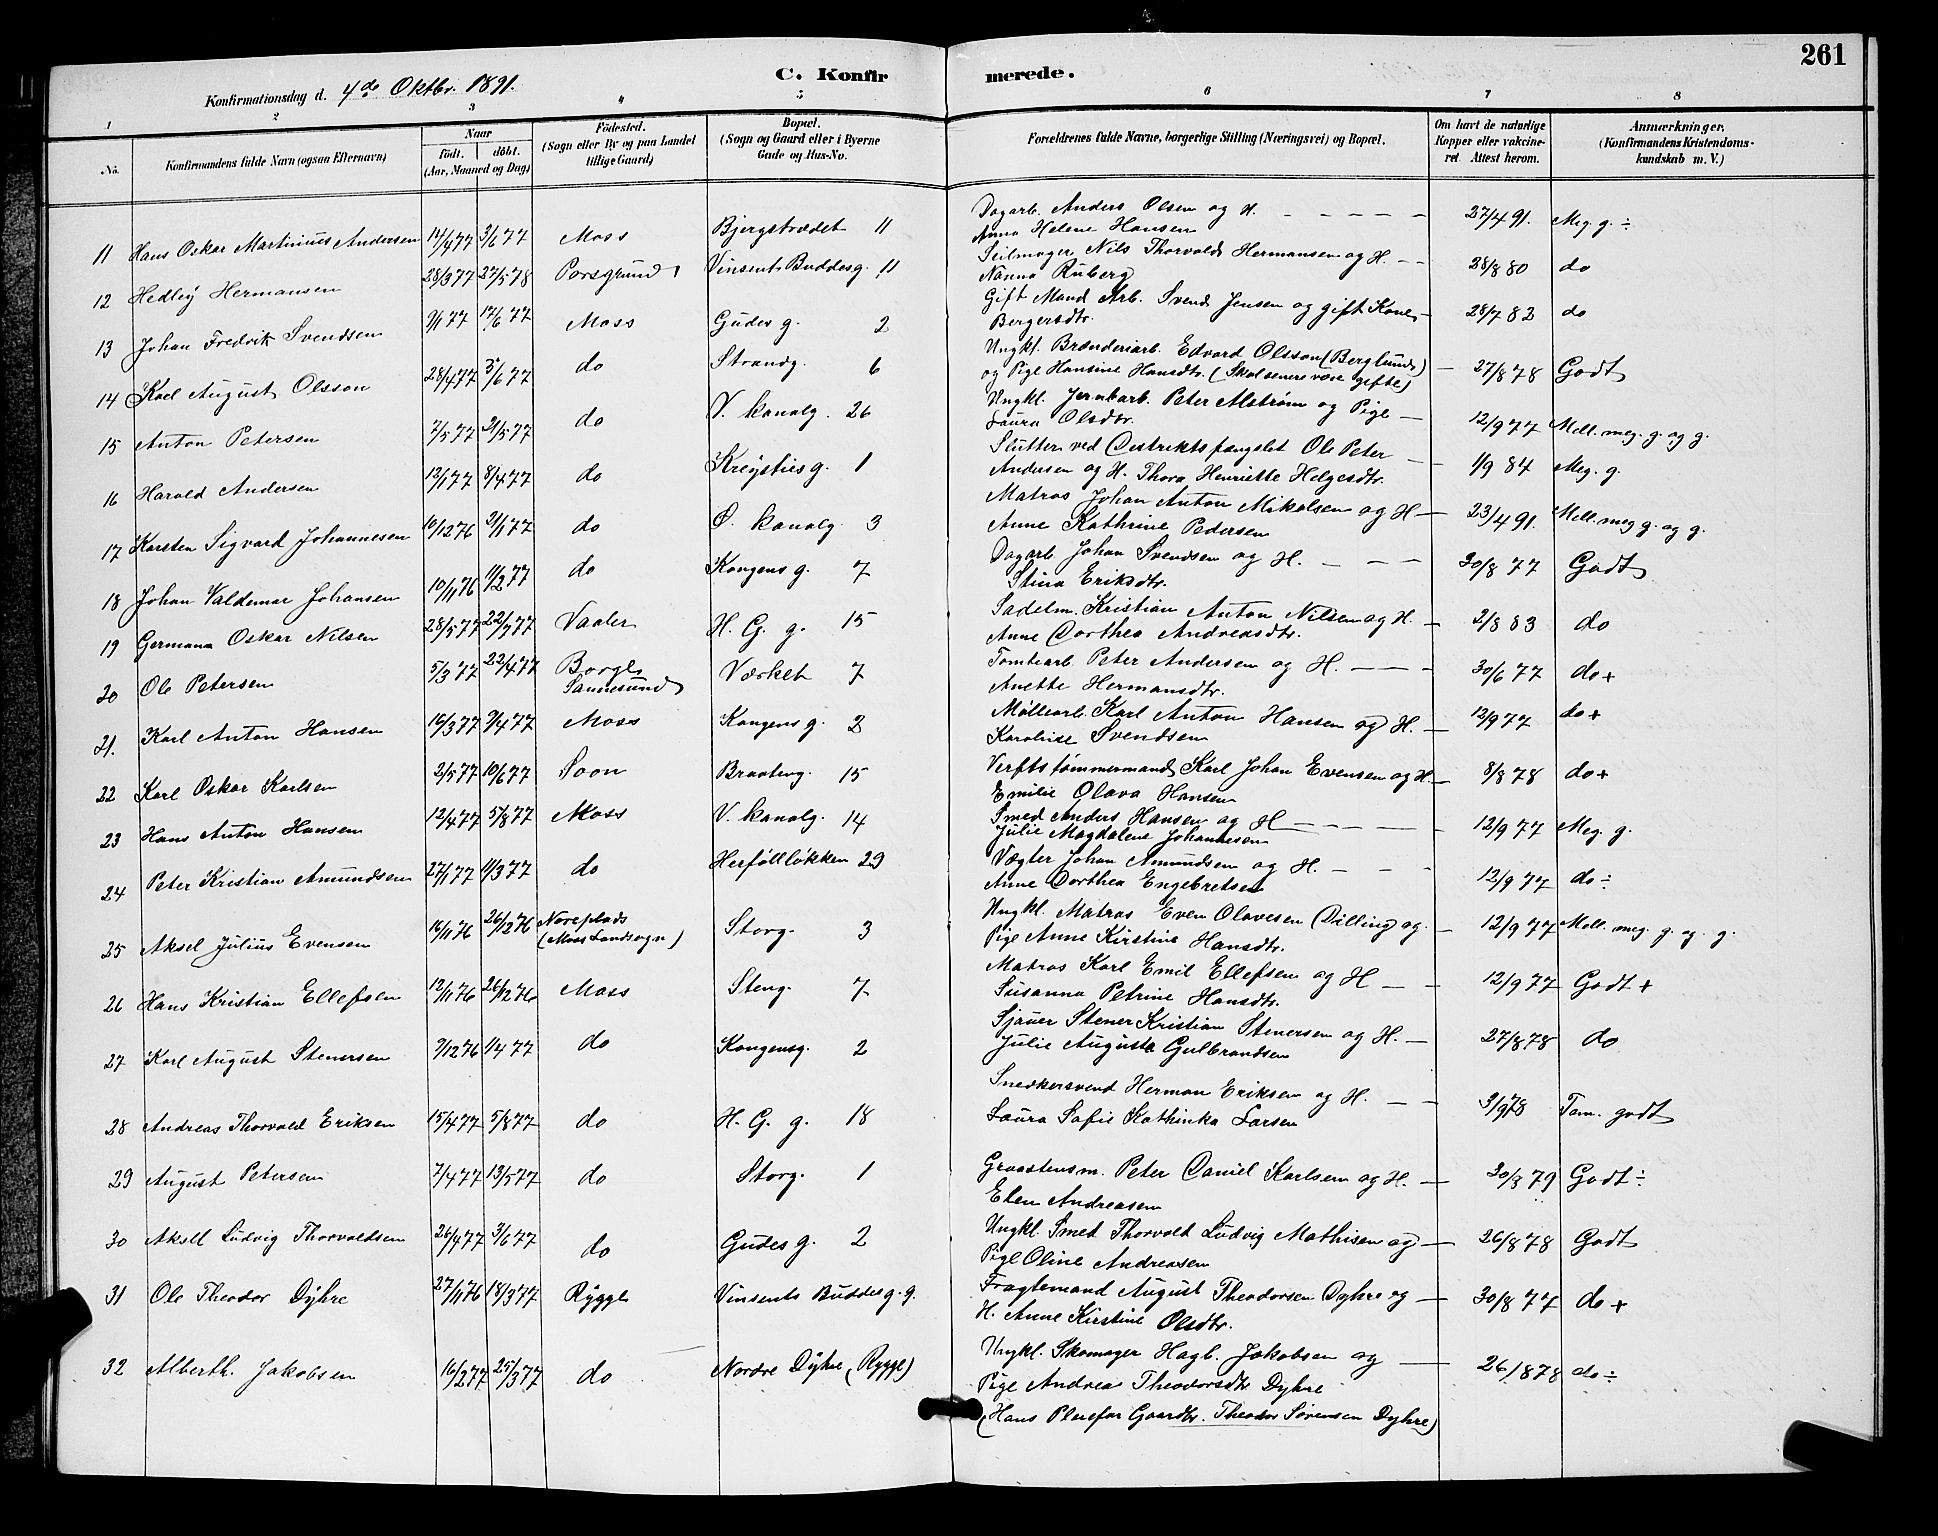 261
C. Konfirmerede.
Konfirmationsdag d. 4de Oktbr. 1891.
1 2 3 4 5 6 7 8
No. Konfirmandens fulde Navn (ogsaa Efternavn) Naar født. døbt. (Aar, Maaned og Dag) Fødested. (Sogn eller By og paa Landet tillige Gaard) Bopæl. (Sogn og Gaard eller i Byerne Gade og Hus-No. Forældrenes fulde Navne, borgerlige Stilling (Næringsvei) og Bopæl. Om havt de naturlige Kopper eller vakcineret Attest herom. Anmærkninger. (Konfirmandens Kristendomskundskab m. V.)
11 Hans Oskar Martinius Andersen 14/4 77 3/6 77 Moss Bjergstrædet 11 Dagarb. Anders Olsen og H. 27/4 91. Meg. g. ÷
Anna Helene Hansen
12 Hedley Hermansen 28/9 77 27/5 78 Porsgrund Vinsents Buddesg. 11 Seilmager Nils Thorvald Hermansen og H. 28/8 80 do
Nanna Ruberg
13 Johan Fredrik Svendsen 9/1 77 17/6 77 Moss Gudes g. 2 Gift Mand Arb. Svend Jensen og gift Kone 28/7 82 do
Bergersdtr.
14 Karl August Olsson 28/4 77 3/6 77 do Strandg. 6 Ungkl. Brænderiarb. Edvard Olsson (Berglund) 27/8 78 Godt
og Pige Hansine Hansdtr. (Skal senere være gifte)
15 Anton Petersen 7/5 77 21/5 77 do V. kanalg. 26 Ungkl. Jernbarb. Peter Alstrøm og Pige 12/9 77 Mell. meg. g. og g.
Laura Olsdtr.
16 Harald Andersen 12/1 77 8/4 77 do Kreystiesg. 1 Slutter ved Destriktsfængslet Ole Peter 1/9 84 Meg. g.
Andersen og H. Thora Henriette Helgesdtr.
17 Karsten Sigvard Johannesen 10/12 76 21/1 77 do Ø. kanalg. 3 Matros Johan Anton Mikalsen og H 23/4 91. Mell. meg g. og g.
Anne Kathrine Pedersen
18 Johan Valdemar Johansen 10/11 76 11/2 77 do Kongens g. 7 Dagarb. Johan Svendsen og H. 30/8 77 Godt
Stina Eriksdtr.
19 Germann Oskar Nilsen 28/5 77 22/7 77 Vaaler H. G. g. 15 Sadelm. Kristian Anton Nilsen og H. 2/8 83 do
Anne Dorthea Andreasdtr.
20 Ole Petersen 5/3 77 22/4 77 Borge Sannesund Værket 7 Tomtearb. Peter Andersen og H. 30/6 77 do +
Anette Hermansdtr.
21. Karl Anton Hansen 16/3 77 2/4 77 Moss Kongens g. 2 Møllearb. Karl Anton Hansen og H. 12/9 77 do +
Karoline Svendsen
22 Karl Oskar Karlsen 2/5 77 10/6 77 Soon Braateng. 15 Verftstømmermand Karl Johan Evensen og H. 8/8 78 do +
Emilie Olava Hansen
23 Hans Anton Hansen 12/4 77 5/8 77 Moss V. kanalg. 14 Smed Anders Hansen og H 12/9 77 Meg. g.
Julie Magdalene Johannesen
24 Peter Kristian Amundsen 27/1 77 11/3 77 do Herføllløkken 29 Vægter Johan Amundsen og H. 12/9 77 do ÷
Anne Dorthea Engebretsen
25 Aksel Julius Evensen 16/11 76 26/12 76 Noreplads (Moss Landsogn) Storg. 3 Ungkl. Matros Even Olavesen (Dilling) og 12/9 77 Mell. meg. g. og. g.
Pige Anne Kirstine Hansdtr.
26 Hans Kristian Ellefsen 12/11 76 26/12 76 Moss Steng. 7 Matros Karl Emil Ellefsen og H 12/9 77 Godt +
Susanna Petrine Hansdtr.
27 Karl August Stenersen 9/12 76 1/4 77 do Kongensg. 2 Sjauer Stener Kristian Stenersen og H. 27/8 78 do
Julie Augusta Gulbrandsen
28 Andreas Thorvald Eriksen 15/4 77 5/8 77 do H. G. g. 18 Snedkersvend Herman Eriksen og H. 3/9 78 Tem. godt
Laura Sofie Kathinka Larsen
29 August Petersen 7/4 77 13/5 77 do Storg. 1 Graastensm. Peter Daniel Karlsen og H. 20/3 79 Godt ÷
Elen Andreasen
30 Aksel Ludvig Thorvaldsen 26/4 77 3/6 77 do Gudes g. 2 Ungkl. Smed Thorvald Ludvig Mathisen og 26/8 78 Godt
Pige Oline Andreasen
31 Ole Theodor Dyhre 27/11 76 18/3 77 Rygge Vinsents Buddesg. 9. Fragtemand August Theodorsen Dyhre og 30/8 77 do +
H. Anne Kirstine Olsdtr.
32 Alberth. Jakobsen 16/2 77 25/3 77 do Nordre Dyhre (Rygge) Ungkl. Skomager Hagb. Jakobsen og 26/8 78 do ÷
Pige Andrea Theodorsdtr Dyhre
(Hans Pleiefar Gaardbr. Theodor Sørensen Dyhre)